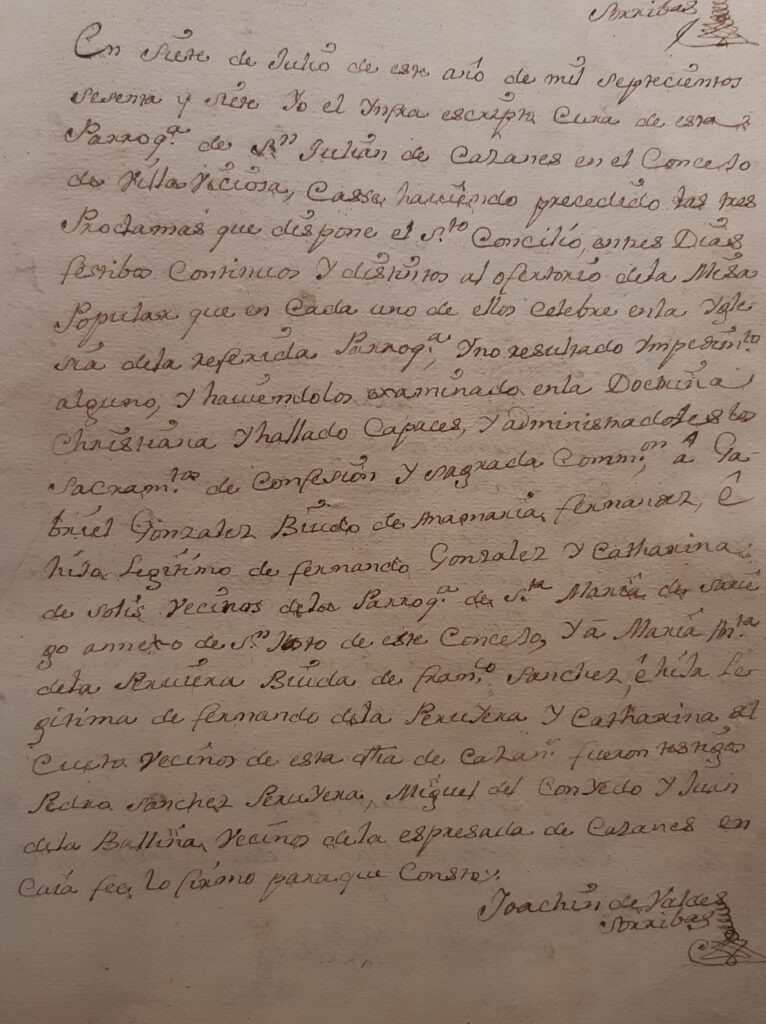 Sorribas
En siete de Julio de este año de mil septecientos
sesenta y siete Yo el Ynfra escripto Cura de esta
Parroq.ª de S.n Julian de Cazanes en el Concejo
de Villa Viciosa, Casse haviendo precedido las tres
Proclamas que dispone el S.to Concilio, entres Dias
festibos Continuos Y distintos al ofertorio dela Misa
Popular que en Cada uno de ellos Celebre enla Ygle
sia dela referida Parroq.ª, Y no resultado Ympedim.to
alguno, Y haviendolos examinado enla Doctrina
Christiana Y hallado Capaces, Y administradoles los
Sacram.tos de Confesion Y sagrada Comm.on, â Ga-
briel Gonzalez Biudo de Anamaria fernandez, ê
hijo Legitimo de fernando Gonzalez Y Catharina
de Solis Vecinos dela Parroq.ª de S.ta Maria de
go annexo de S.n de este Concejo, Y a Maria An.ta
dela Peruyera Biuda de fran.co Sanchez, ê hija Le-
gitima de fernando dela Peruyera Y Catharina del
Cueto Vecinos de esta dha de Cazan.s fueron testigos
Pedro Sanchez Peruyera, Miguel del Conyedo Y Juan
dela Ballina, Vecinos dela espresada de Cazanes en
Cuia fee lo firmo paraque Conste.
Joachin de Valdes
Sorribas